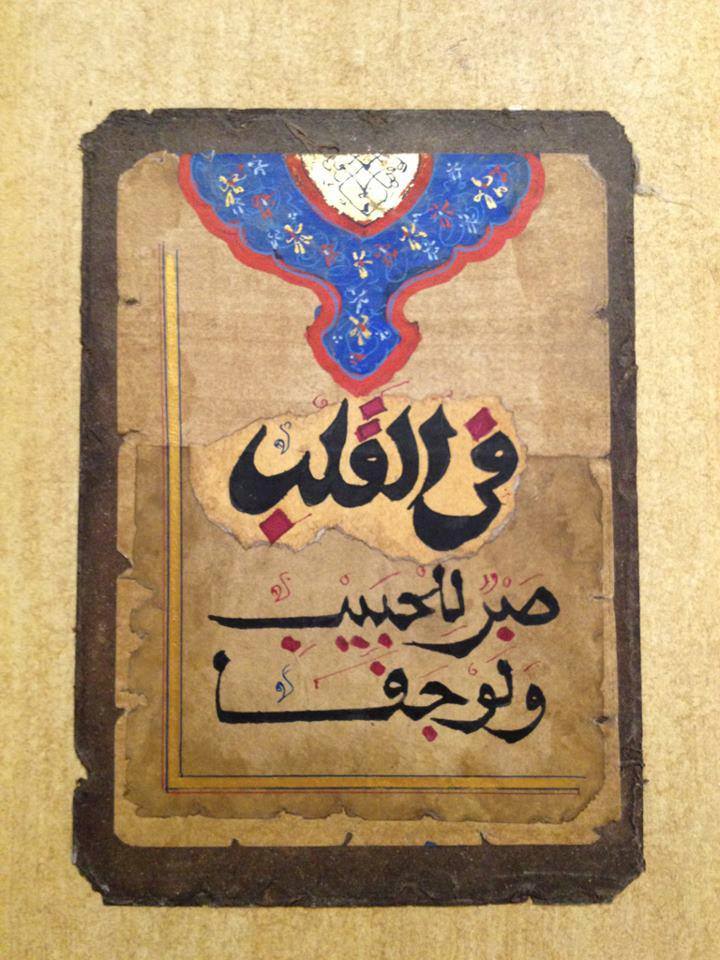 في القلب
صَبْرٌ للحَبِيْبِ
وَلَوجفَا